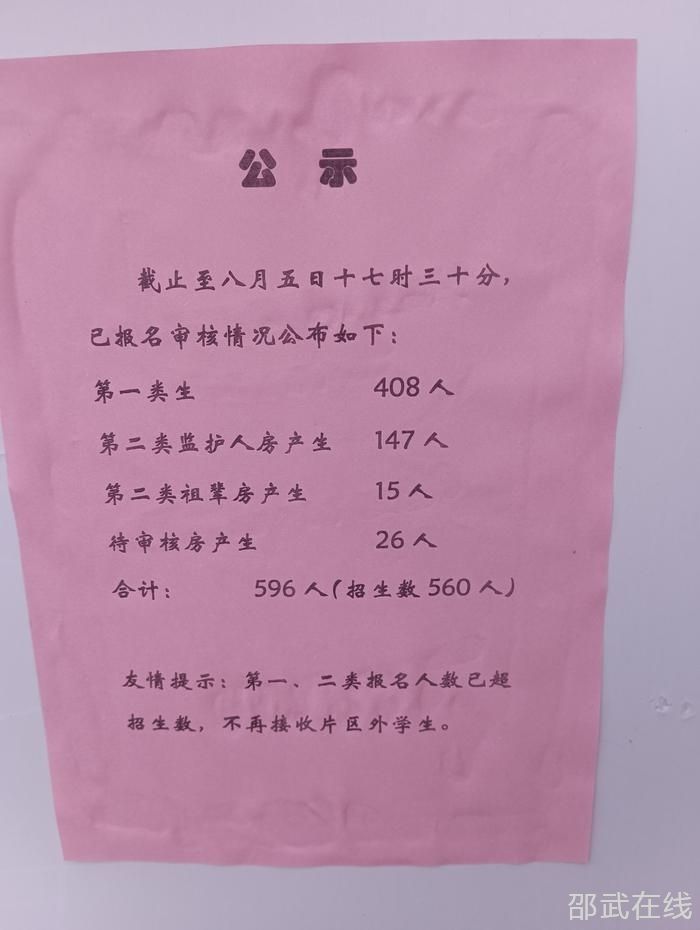 公 示
截止至八月五日十七时三十分，
已报名审核情况公布如下：
第一类生 408 人
第二类监护人房产生 147 人
第二类祖辈房产生 15 人
待审核房产生 26 人
合计： 596 人（招生数 560 人）
友情提示：第一、二类报名人数已超
招生数，不再接收片区外学生。
邵武在线